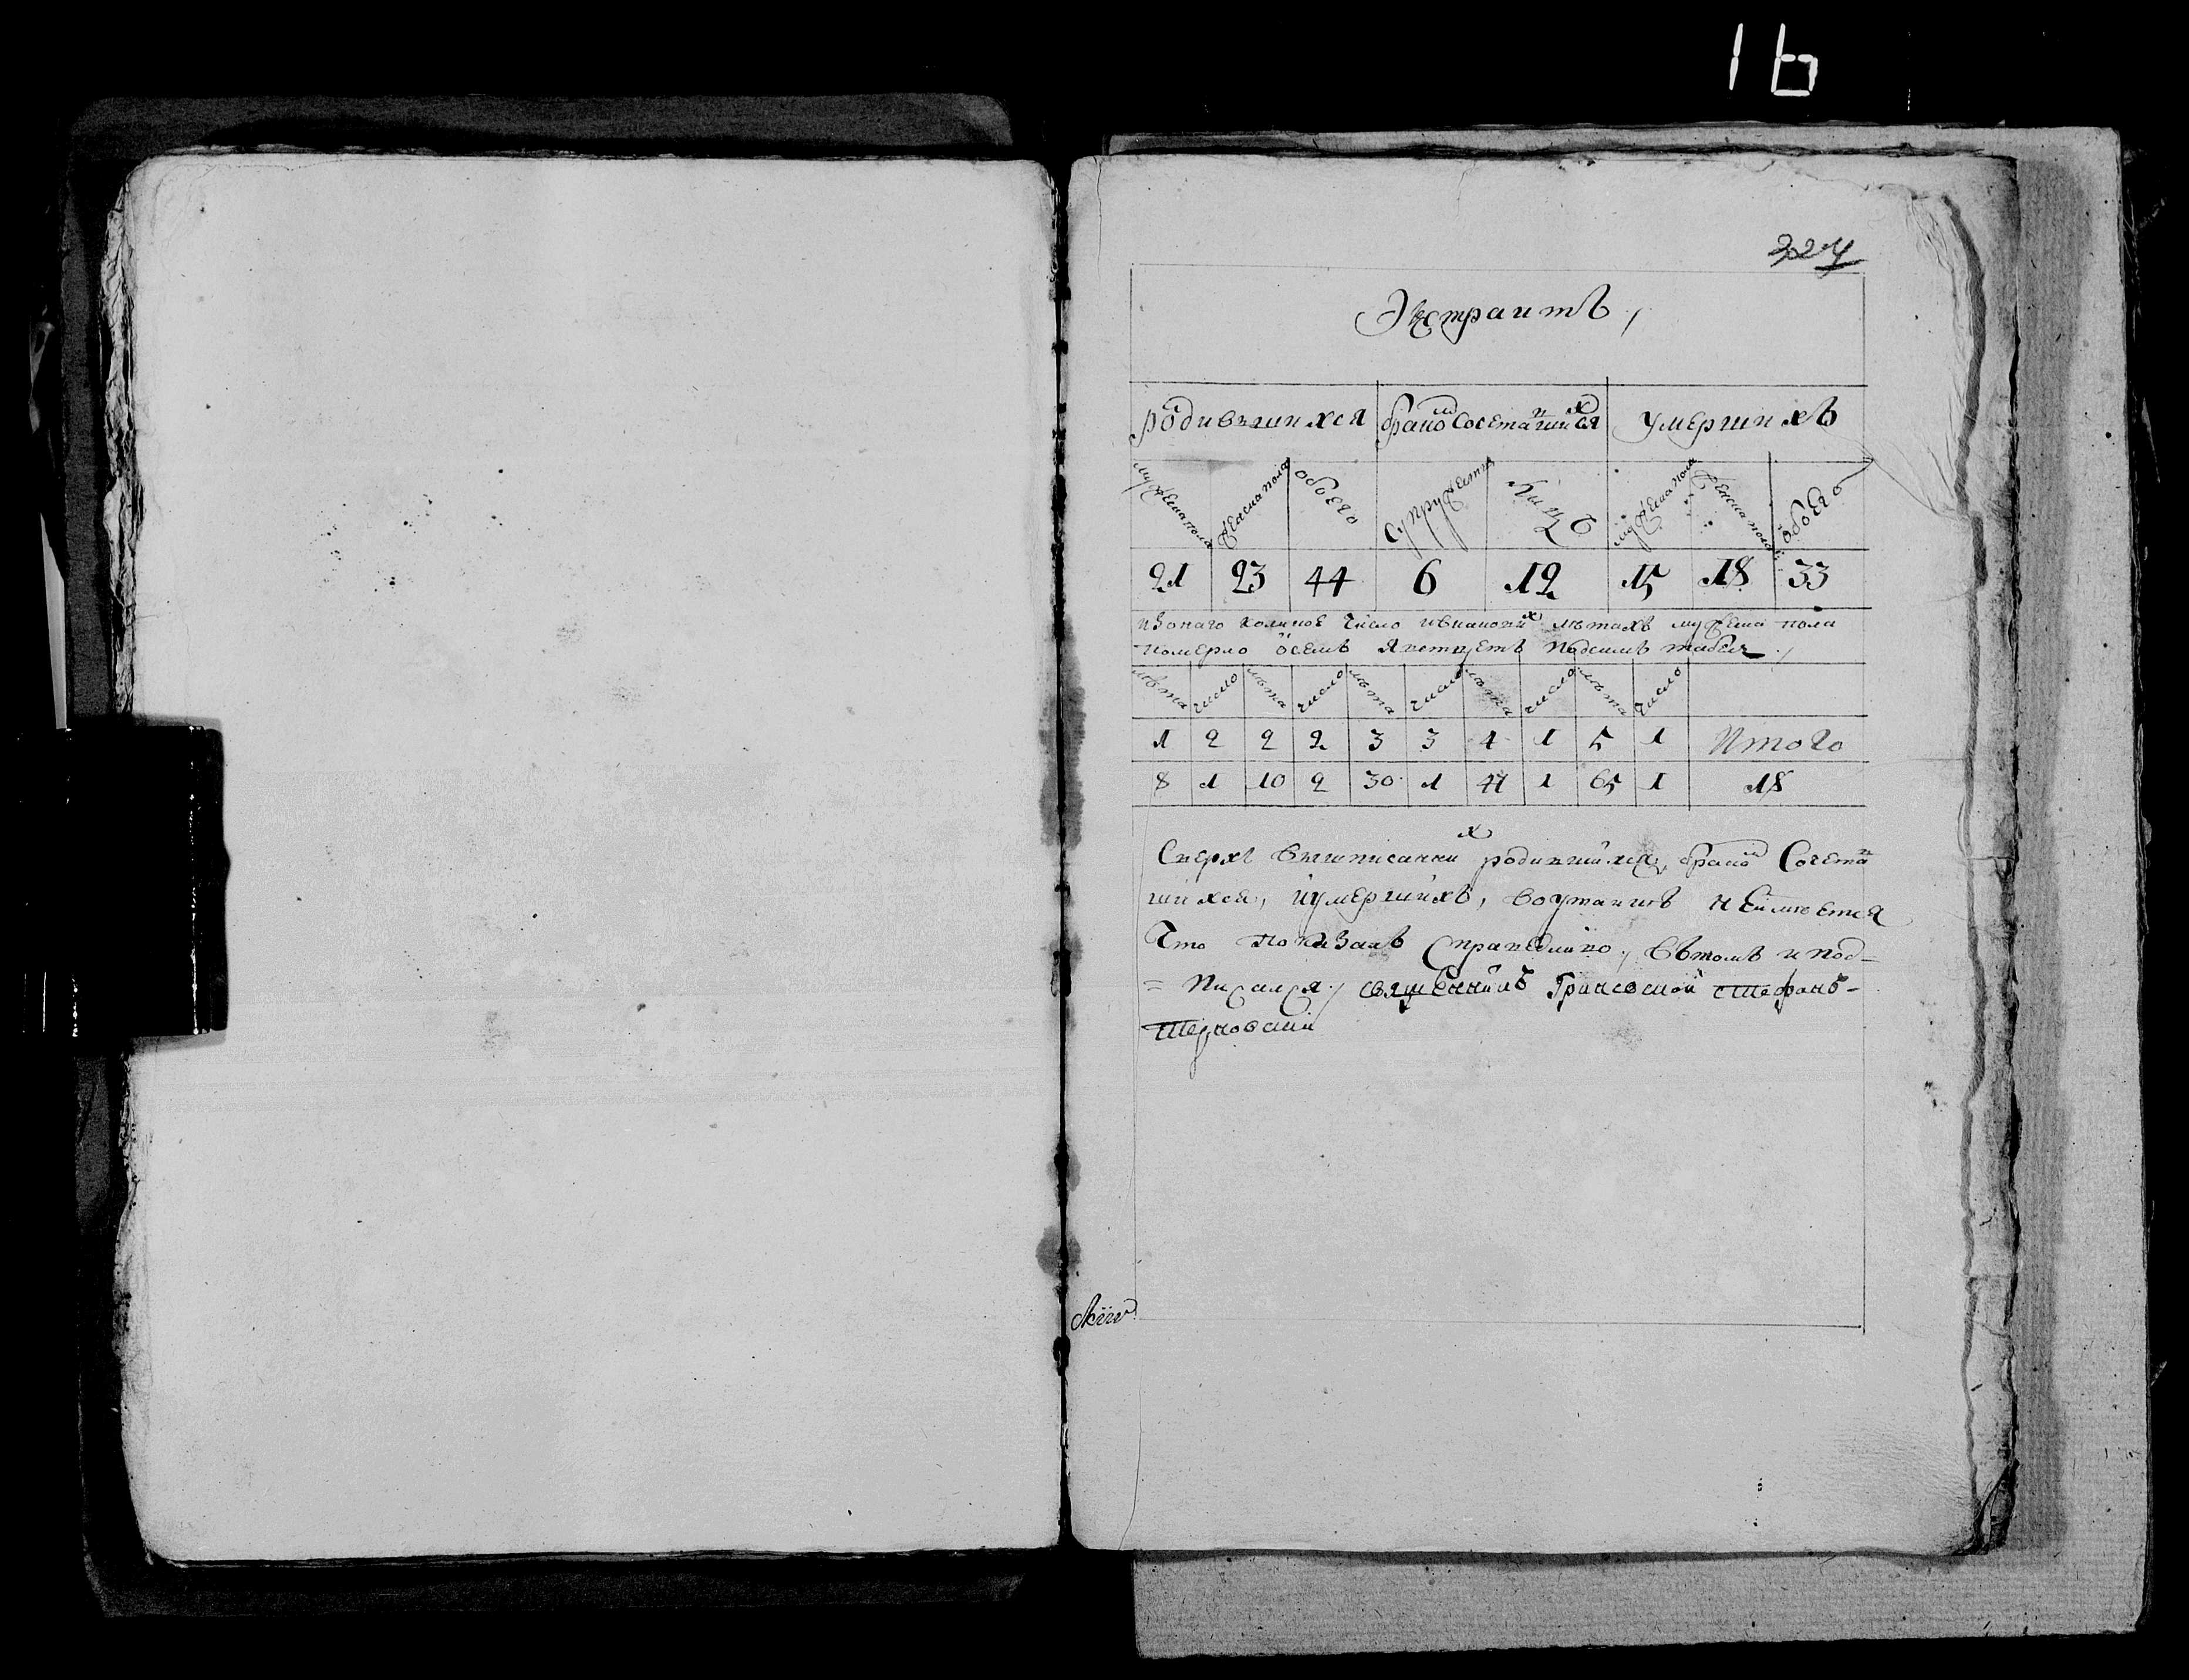 16
227
Экстрактъ
родившихся бракомъ сочетавшихся умершихъ
мужеска пола женска пола обоего супружествъ лицъ мужеска пола женска пола обоего
21 23 44 6 12 15 18 33
изонаго количое число ивкакихъ лѣтахъ мужеска пола
померло осемъ явствуетъ подсимъ табель
лѣта число лѣта число лѣта число лѣта число лѣта число
1 2 2 2 3 3 4 1 5 1 Итого
8 1 10 2 30 1 41 1 65 1 18
Сверхъ вышписанныхъ родившихся, бракомъ Сочетав
шихся, иумершихъ, воутаикѣ неимѣется
Что показалъ Справедливо, вътомъ и под=
= писался, священникъ Стефанъ-
Терновский